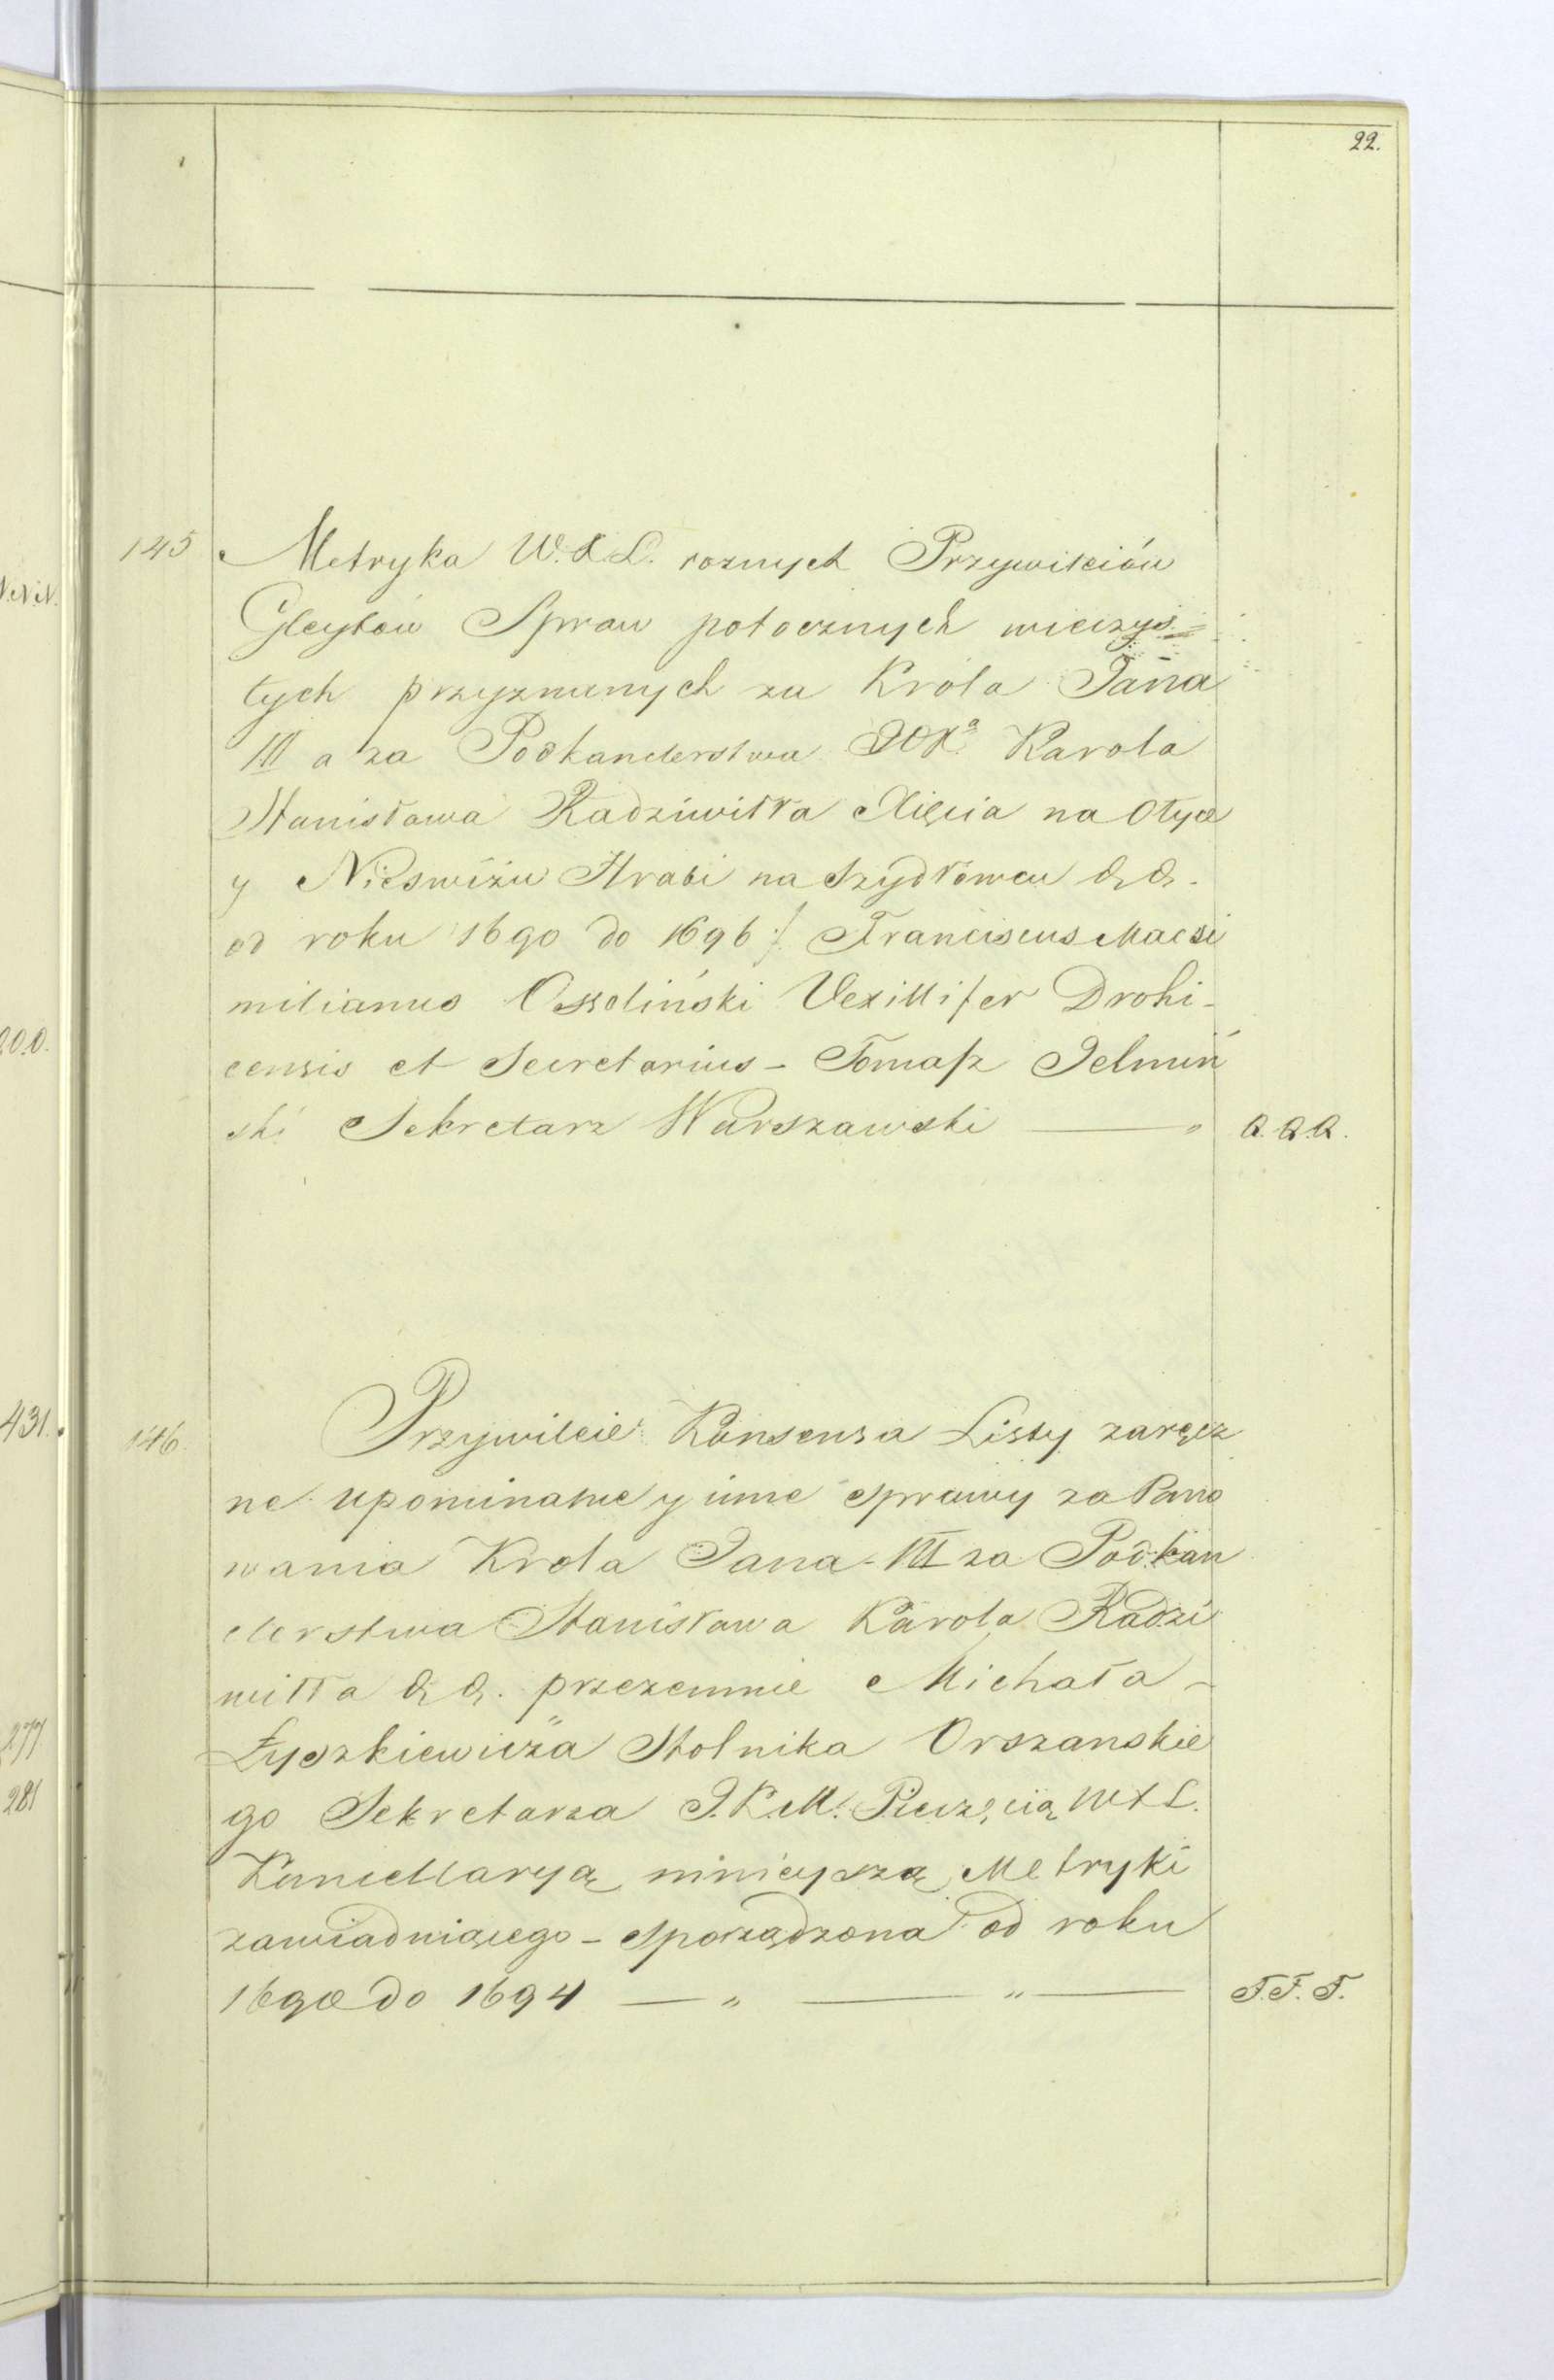 22.
145 Metryka W.X.L. roznych Przywileiów
Gleytów Spraw potocznych wieczys=
tych przyznanych za Króla Jana
III a za Podkanclerstwa JOXa Karola
Stanisława Radziwiłła Xięcia na Ołyce
y Nieswiżu Hrabi na Szydłowcu & &.
od roku 1690 do 1696 /. Franciscus Macsi
milianus Ossoliński Vexillifer Drohi-
censis et Secretarius - Tomasz Jelmiń
ski Sekretarz Warszawski — " Q.Q.Q.
146. Przywileie Konsensa Listy zaręcz
ne upominalne y inne sprawy za Pano
wania Krola Jana - III za Podkan
clerstwa Stanisława Karola Radzi
wiłła & &. przezemnie Michała -
Łyszkiewicza Stolnika Orszanskie
go Sekretarza J.K.M. Pieczęcią WXL.
Kancellaryą ninieyszą Metryki
zawiaduiącego - sporządzona od roku
1690 do 1694 — " — " — T.T.T.
N.N.N.
O.O.O.
431.
277
281